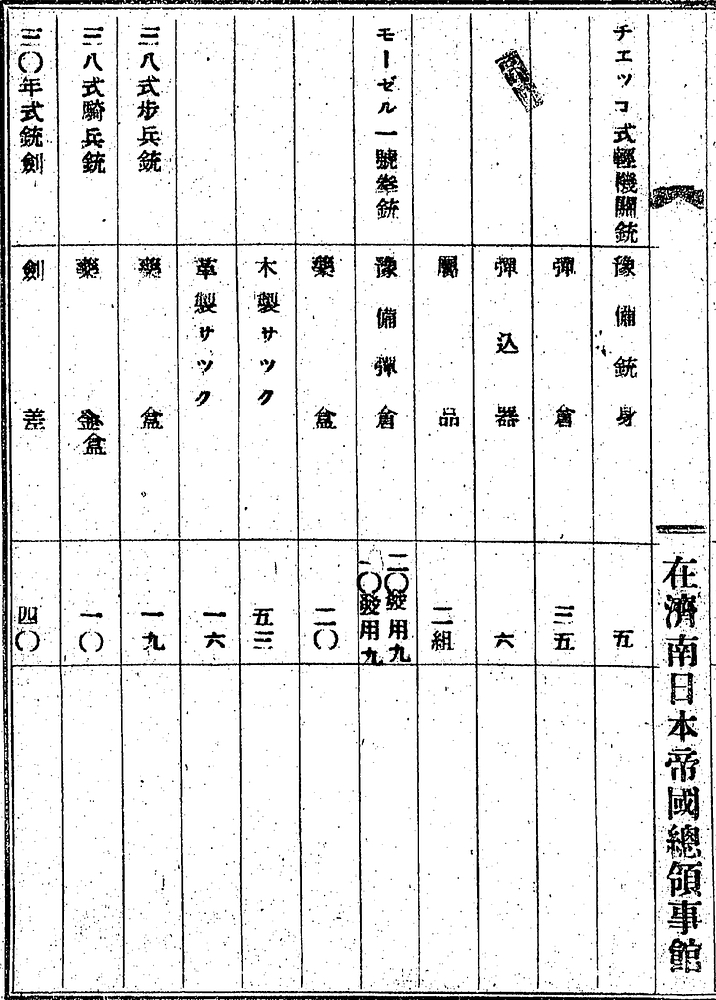 在濟南日本帝國總領事館
チエツコ式輕機關銃 豫備銃身 五
彈倉 三五
彈込器 六
屬品 二組
モーゼル一號拳銃 豫備彈倉 二〇發用九 一〇發用九
藥盒 二〇
木製サツク 五三
革製サツク 一六
三八式步兵銃 藥盒 一九
三八式騎兵銃 藥盒 一〇
三〇年式銃劍 劍差 四〇